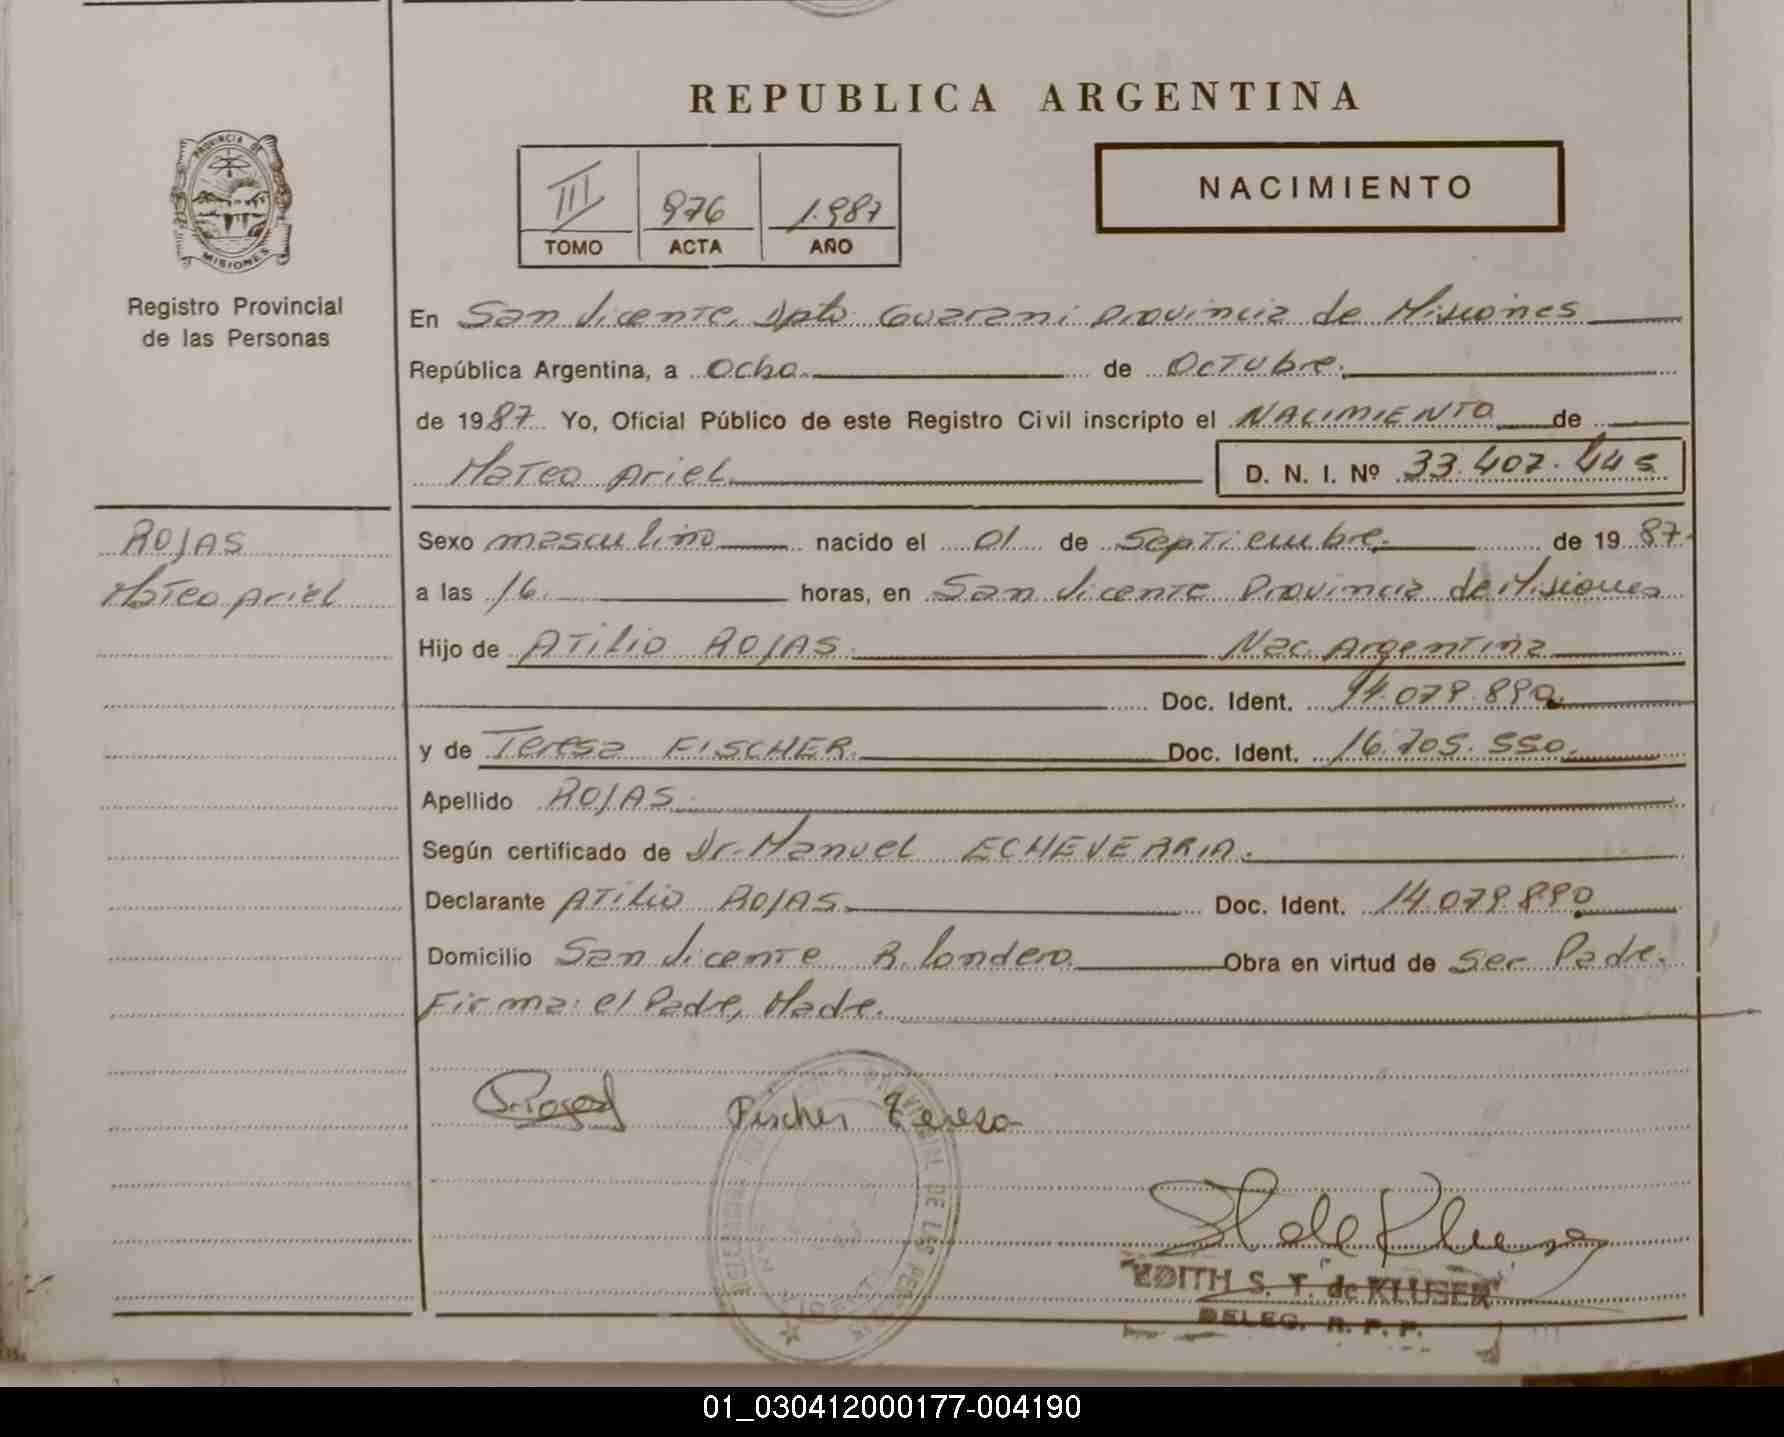 REPUBLICA ARGENTINA
PROVINCIA DE
MISIONES
Registro Provincial
de las Personas
III 976 1.987
TOMO ACTA AÑO
NACIMIENTO
En San Vicente, Dpto Guarani Provincia de Misiones
República Argentina, a Ocho de Octubre.
de 1987 Yo, Oficial Público de este Registro Civil inscripto el NACIMIENTO de
Mateo Ariel D. N. I. Nº 33.407.445
ROJAS
Mateo Ariel
Sexo masculino nacido el 01 de Septiembre de 1987.
a las 16. horas, en San Vicente Provincia de Misiones
Hijo de Atilio ROJAS Nac. Argentina
Doc. Ident. 14.079.890
y de Teresa FISCHER. Doc. Ident. 16.705.550.
Apellido ROJAS
Según certificado de Dr. Manuel ECHEVERRIA.
Declarante Atilio ROJAS Doc. Ident. 14.079.890
Domicilio San Vicente B. Londero Obra en virtud de Ser Padre.
Firma: el Padre, Madre.
Fischer Teresa
EDITH S. T. de KLUSER
DELEG. R. P. P.
01_030412000177-004190